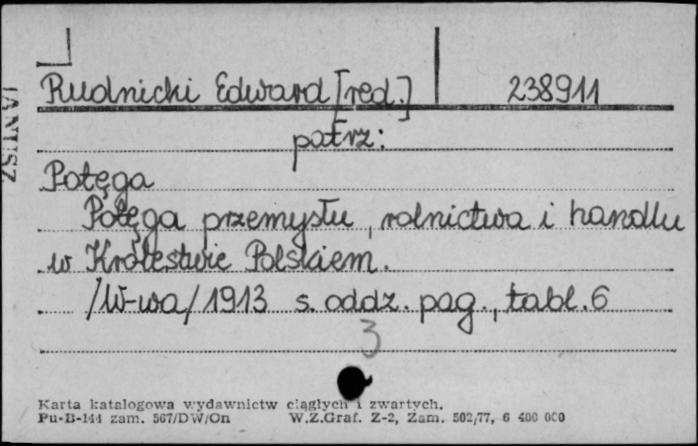 Rudnicki Edward [red.] 238911
patrz:
Potęga
Potęga przemysłu, rolnictwa i handlu
w Królestwie Polskiem.
/W-wa/ 1913 s. oddz. pag., tabl. 6
3
JANUSZ
Karta katalogowa wydawnictw ciągłych i zwartych.
Pu-B-144 zam. 567/DW/On W.Z.Graf. Z-2, Zam. 502/77, 6 400 000